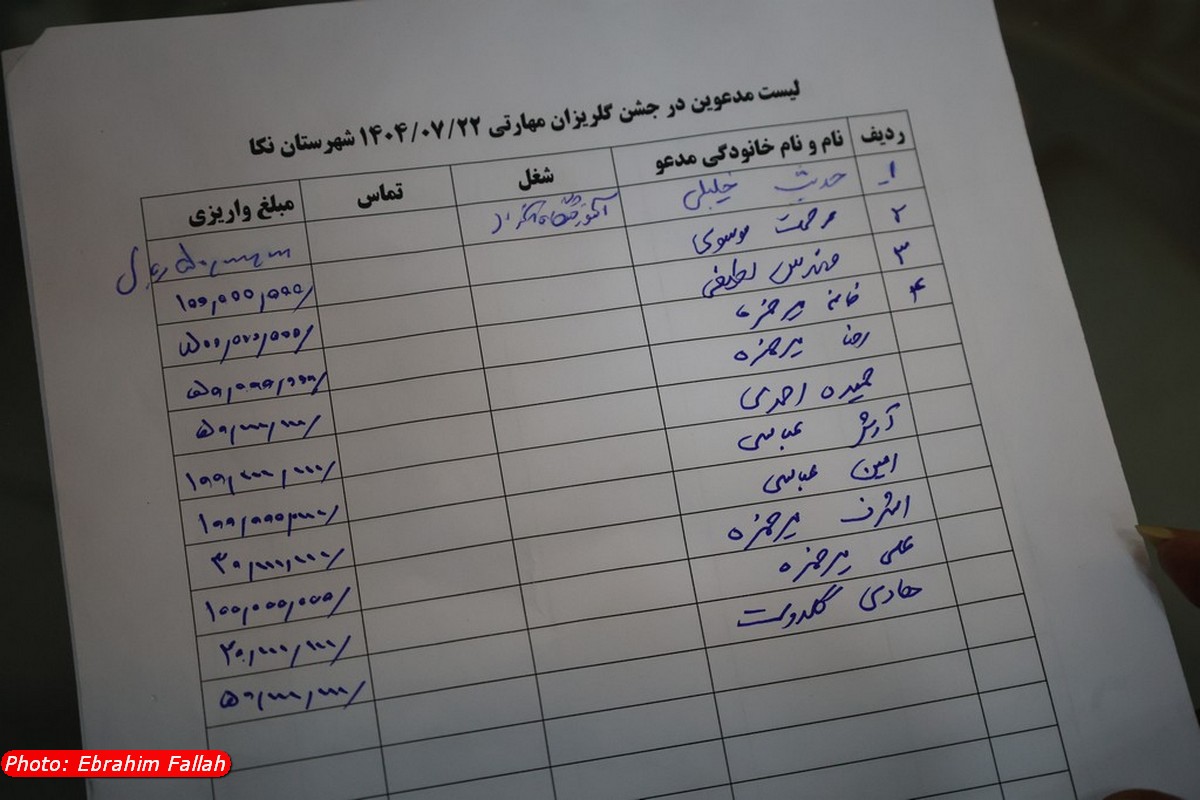 لیست مدعوین در جشن گلریزان مهارتی ۱۴۰۴/۰۷/۲۲ شهرستان نکا
ردیف نام و نام خانودگی مدعو شغل تماس مبلغ واریزی
۱- حدیث خلیلی ۵۰,۰۰۰,۰۰۰ ریال
۲ موسوی ۱۰۰,۰۰۰,۰۰۰/
۳ مهندس لطیفی ۵۰۰,۰۰۰,۰۰۰/
۴ میرحمزه ۵۰,۰۰۰,۰۰۰/
رضا میرحمزه ۵۰,۰۰۰,۰۰۰/
حمیده احمدی ۱۰۰,۰۰۰,۰۰۰/
آرش عباسی ۱۰۰,۰۰۰,۰۰۰/
امین عباسی ۳۰,۰۰۰,۰۰۰/
اشرف میرحمزه ۱۰۰,۰۰۰,۰۰۰/
علی میرحمزه ۲۰,۰۰۰,۰۰۰/
هادی گلدوست ۵۰,۰۰۰,۰۰۰/
Photo: Ebrahim Fallah